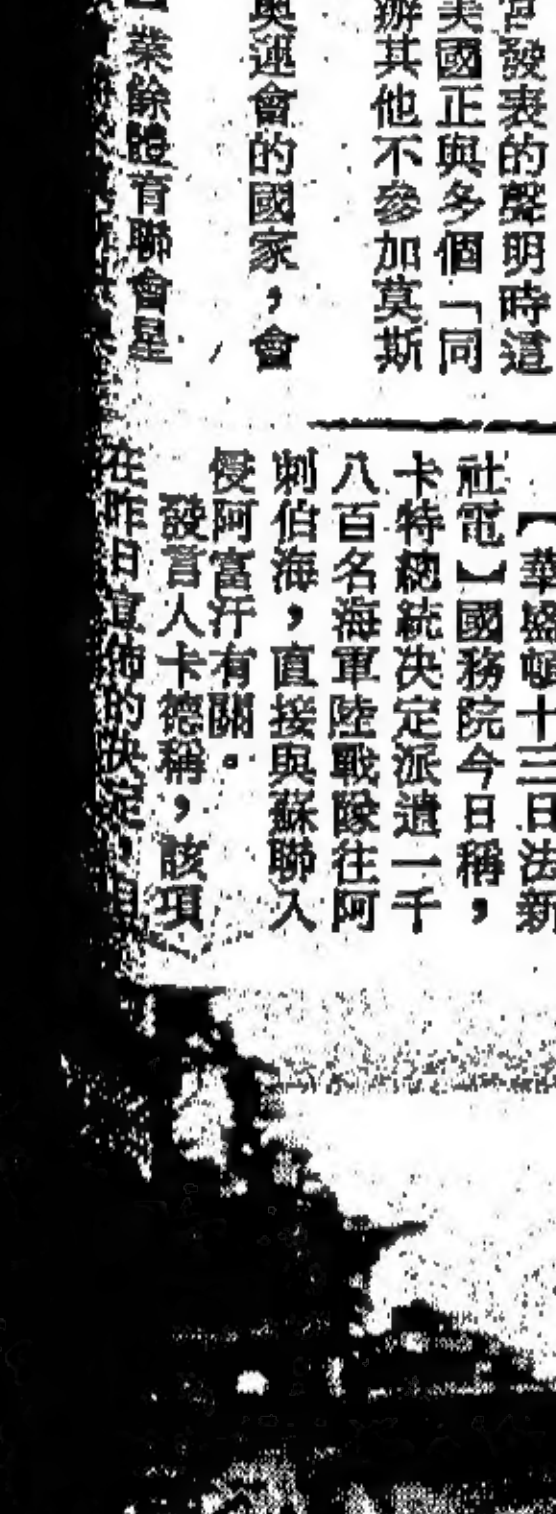 發表的聲明時這
美國正與多個「同
辦其他不參加莫斯
奧運會的國家，會
業餘體育聯會星
【華盛頓十三日法新
社電】國務院今日稱，
卡特總統决定派遣一千
八百名海軍陸戰隊往阿
剌伯海，直接與蘇聯入
侵阿富汗有關。
發言人卡德稱，該項
在昨日宣佈的决定，